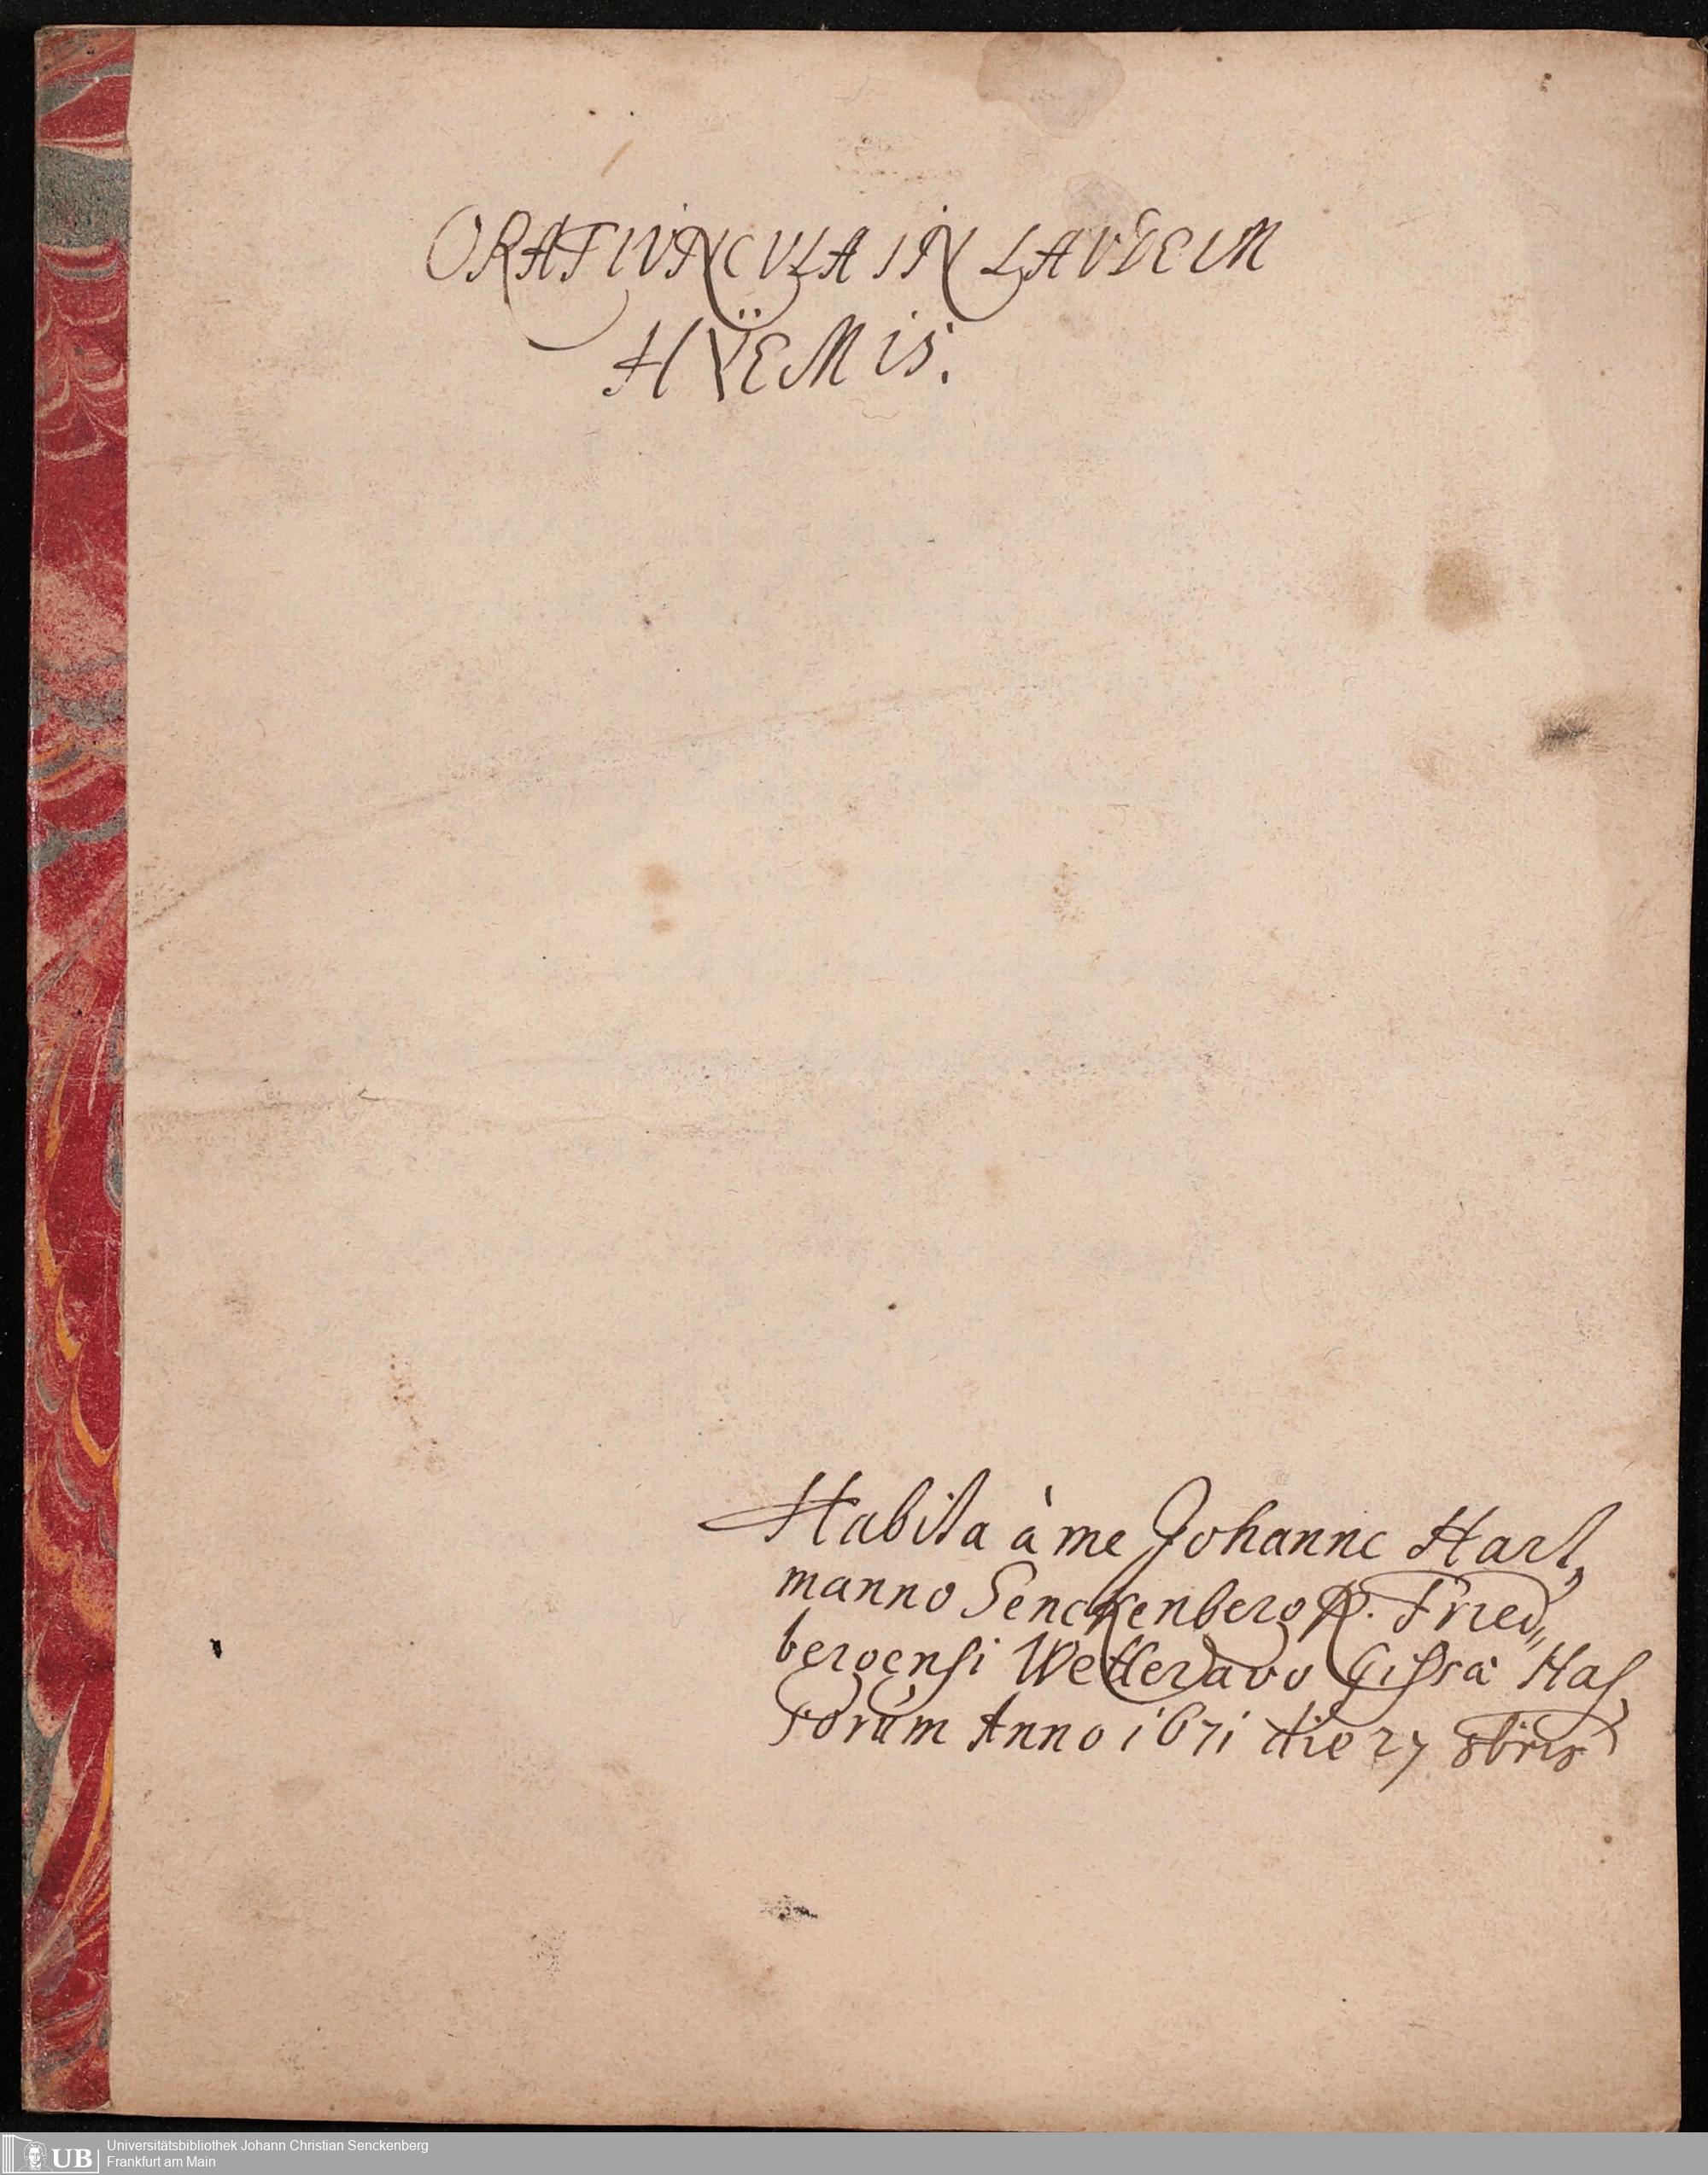 ORATIUNCULA IN LAUDEM
HŸEMIS.
Habita à me Johanne Hart„
manno Senckenberg R. Fried„
bergensi Wetteravo Gissà Has„
sorùm Anno 1671 die 27 8bris
UB Universitätsbibliothek Johann Christian Senckenberg
Frankfurt am Main